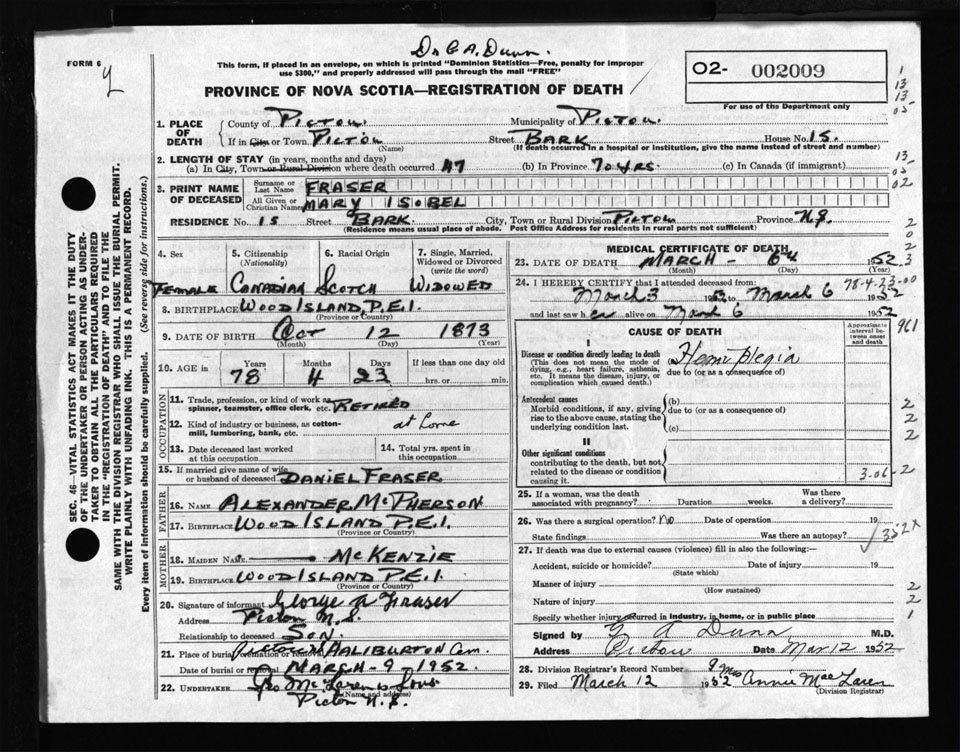 Dr G A. Dunn.
FORM 6
This form, if placed in an envelope, on which is printed "Dominion Statistics—Free, penalty for improper
use $300," and properly addressed will pass through the mail "FREE"
PROVINCE OF NOVA SCOTIA—REGISTRATION OF DEATH
O2- 002009
For use of the Department only
1. PLACE OF DEATH
County of PICTOU. Municipality of PICTOU.
If in City or Town PICTOU Street BARK House No. 15.
(Name) (If death occurred in a hospital or institution, give the name instead of street and number)
2. LENGTH OF STAY (in years, months and days)
(a) In City, Town or Rural Division where death occurred 47 (b) In Province 70 YRS. (c) In Canada (if immigrant)
3. PRINT NAME OF DECEASED
Surname or Last Name FRASER
All Given or Christian Names MARY ISOBEL
RESIDENCE No. 15 Street BARK City, Town or Rural Division PICTOU Province N.S.
(Residence means usual place of abode. Post Office Address for residents in rural parts not sufficient)
SEC. 46—VITAL STATISTICS ACT MAKES IT THE DUTY
OF THE UNDERTAKER OR PERSON ACTING AS UNDER-
TAKER TO OBTAIN ALL THE PARTICULARS REQUIRED
IN THE "REGISTRATION OF DEATH" AND TO FILE THE
SAME WITH THE DIVISION REGISTRAR WHO SHALL ISSUE THE BURIAL PERMIT.
WRITE PLAINLY WITH UNFADING INK. THIS IS A PERMANENT RECORD.
Every item of information should be carefully supplied. (See reverse side for instructions.)
4. Sex FEMALE
5. Citizenship (Nationality) CANADIAN
6. Racial Origin SCOTCH
7. Single, Married, Widowed or Divorced (write the word) WIDOWED
8. BIRTHPLACE WOOD ISLAND, P.E.I.
(Province or Country)
9. DATE OF BIRTH OCT 12 1873
(Month) (Day) (Year)
10. AGE in Years 78 Months 4 Days 23 If less than one day old hrs. or min.
OCCUPATION
11. Trade, profession, or kind of work as spinner, teamster, office clerk, etc. RETIRED
12. Kind of industry or business, as cotton-mill, lumbering, bank, etc. at Lorne
13. Date deceased last worked at this occupation
14. Total yrs. spent in this occupation
15. If married give name of wife or husband of deceased DANIEL FRASER
FATHER
16. NAME ALEXANDER McPHERSON
17. BIRTHPLACE WOOD ISLAND P.E.I.
(Province or Country)
MOTHER
18. MAIDEN NAME McKENZIE
19. BIRTHPLACE WOOD ISLAND P.E.I.
(Province or Country)
20. Signature of informant George A Fraser
Address Pictou N.S.
Relationship to deceased SON.
21. Place of burial, cremation or removal HALIBURTON Cem.
Date of burial or removal MARCH-9-1952.
22. UNDERTAKER Geo McLaren & Sons
(Name and address)
Pictou N.S.
MEDICAL CERTIFICATE OF DEATH
23. DATE OF DEATH MARCH - 6th 1952
(Month) (Day) (Year)
24. I HEREBY CERTIFY that I attended deceased from: 78-4-23-00
March 3 1952 to March 6 1952
and last saw her alive on March 6 1952
CAUSE OF DEATH
Approximate interval between onset and death
I
Disease or condition directly leading to death
(This does not mean the mode of dying, e.g., heart failure, asthenia, etc. It means the disease, injury, or complication which caused death.)
Hemiplegia
due to (or as a consequence of)
Antecedent causes
Morbid conditions, if any, giving rise to the above cause, stating the underlying condition last.
(b)
due to (or as a consequence of)
(c)
II
Other significant conditions
contributing to the death, but not related to the disease or condition causing it.
3-06-2
25. If a woman, was the death associated with pregnancy? Duration weeks. Was there a delivery?
26. Was there a surgical operation? No Date of operation 19
State findings Was there an autopsy?
352X
27. If death was due to external causes (violence) fill in also the following:—
Accident, suicide or homicide? Date of injury 19
(State which)
Manner of injury
(How sustained)
Nature of injury
Specify whether injury occurred in industry, in home, or in public place
Signed by G A Dunn M.D.
Address Pictou Date Mar 12 1952
28. Division Registrar's Record Number 9
29. Filed March 12 1952 Mrs Annie MacLaren
(Division Registrar)